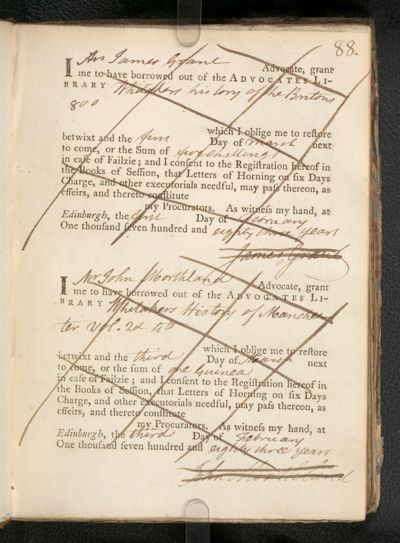 88.
I Mr James Grant Advocate, grant
me to have borrowed out of the ADVOCATES LI-
BRARY Whitakers history of the Britons
8vo
which I oblige me to reſtore
betwixt and the Day of March next
to come, or the Sum of two shillings
in caſe of Failzie; and I conſent to the Regiſtration hereof in
the Books of Seſſion, that Letters of Horning on ſix Days
Charge, and other executorials needful, may paſs thereon, as
effeirs, and thereto conſtitute
my Procurators. As witneſs my hand, at
Edinburgh, the first Day of February
One thouſand ſeven hundred and eighty three years
James Grant
I Mr John Morthland Advocate, grant
me to have borrowed out of the ADVOCATES LI-
BRARY Whitakers History of Manches
ter Vol. 2d 4to
which I oblige me to reſtore
betwixt and the third Day of March next
to come, or the ſum of one Guinea
in caſe of Failzie; and I conſent to the Regiſtration hereof in
the Books of Seſſion, that Letters of Horning on ſix Days
Charge, and other executorials needful, may paſs thereon, as
effeirs, and thereto conſtitute
my Procurators. As witneſs my hand, at
Edinburgh, the third Day of February
One thouſand ſeven hundred and eighty three years
John Morthland